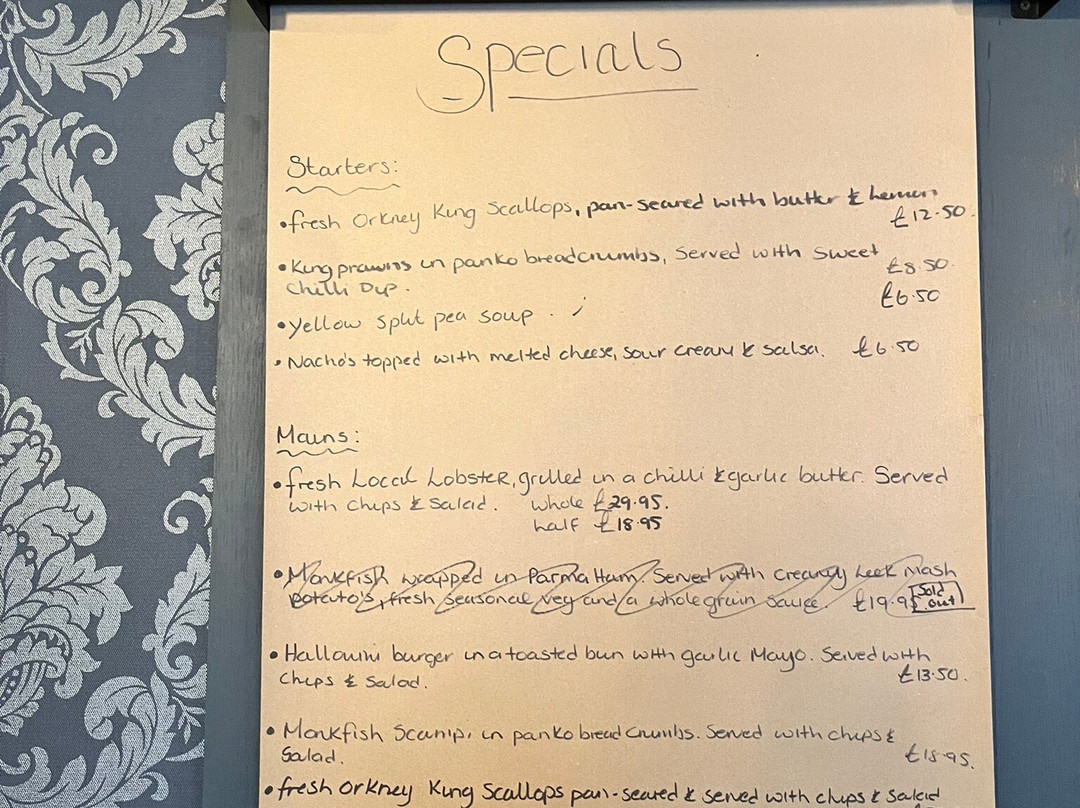 Specials
Starters:
• fresh Orkney King Scallops, pan-seared with butter & Lemon
£12.50.
• King prawns in panko breadcrumbs, Served with Sweet
£8.50.
Chilli Dip.
£6.50
• Yellow Split pea soup.
• Nacho's topped with melted cheese, sour cream & salsa. £6.50
Mains:
• fresh Local Lobster, grilled in a chilli & garlic butter. Served
with Chips & Salad. whole £29.95.
half £18.95
• Monkfish wrapped in Parma Ham. Served with creamy Leek mash
potato's, fresh Seasonal Veg and a wholegrain Sauce. £19.95 Sold out
• Halloumi burger in a toasted bun with garlic Mayo. Served with
£13.50.
Chips & Salad.
• Monkfish Scampi, in panko breadcrumbs. Served with chips &
Salad.
• fresh Orkney King Scallops pan-seared & served with chips & Salad